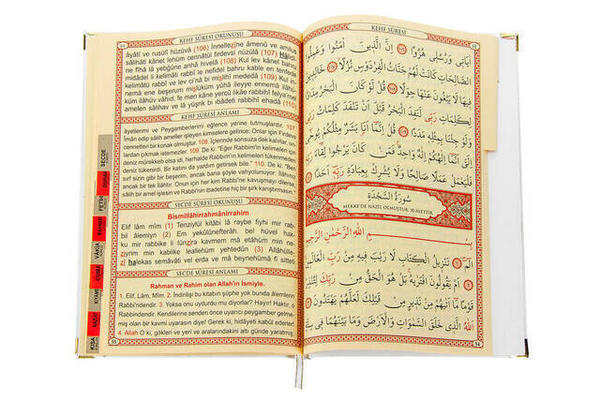 KEHF SÛRESİ OKUNUŞU
âyâtî ve rusulî hüzüvâ (106) İnnellezîne âmenû ve amilus
sâlihâti kânet lehüm cennâtül firdevsi nüzülâ (107) Hâlidîne
ne fîhâ lâ yebğûne anhâ hivelâ (108) Kul lev kânel bahru
midâdel li kelimâti rabbî le nefidel bahru kable en tenfede
kelimâtü rabbî ve lev ci'nâ bi mislihî mededâ (109) Kul in
nemâ ene beşerum mislüküm yûhâ ileyye ennemâ ilâhü
küm ilâhüv vâhid, fe men kâne yercû likâe rabbihî felya'mel
amelen sâlihav ve lâ yüşrik bi ıbâdeti rabbihî ehadâ (110)
KEHF SÛRESİ ANLAMI
âyetlerimi ve Peygamberlerimi eğlence yerine tutmuşlardır. 107.
İman edip sâlih ameller işleyen kimselere gelince; Onlar için Firdevs
cennetleri bir konak olmuştur. 108. İçlerinde sonsuza dek kalırlar, on-
lardan çıkmak istemezler. 109. De ki: "Eğer Rabbin'in kelimeleri için
deniz mürekkeb olsa idi, herhalde Rabbin'in kelimeleri tükenmeden
deniz tükenirdi. Bir katını da yardım getirsek bile." 110. De ki: "Ben
ancak sizin gibi bir beşerim, ancak bana şöyle vahyolunuyor: İlâhınız
ancak bir tek İlâhtır. Onun için her kim Rabbi'ne kavuşmayı dilerse,
sâlih bir amel işlesin ve Rabbi'nin ibadetine hiç bir şirk karıştırmasın."
SECDE SÛRESİ OKUNUŞU
Bismillâhirrahmânirrahîm
Elif lâm mîm (1) Tenzîlül kitâbi lâ raybe fîhi mir rab-
bil âlemîn (2) Em yekûlûnefterâh, bel hüvel hak-
ku mir rabbike li tünzira kavmem mâ etâhüm min ne-
zîrym min kablike leallehüm yehtedûn (3) Allâhül-
zî halekas semâvâti vel erda ve mâ beynehümâ fî sitteti
SECDE SÛRESİ ANLAMI
Rahman ve Rahim olan Allah'ın ismiyle.
1. Elif, Lâm, Mîm. 2. İndirilişi bu kitabın şüphe yok bunda âlemlerin
Rabbi'ndendir. 3. Yoksa onu uydurdu mu diyorlar? Hayır! Haktır, o
Rabbindendir. Kendilerine senden önce uyarıcı peygamber gelme-
miş olan bir kavmi uyarasın diye! Gerek ki, hidâyeti kabul ederler!
4. Allah O ki, gökleri ve yeri ve aralarındakini altı günde yaratmış,
SECDE
FETİH
VÂKIA
CUMA
KIYAME
KEHF SÛRESİ
اٰيَاتٖي وَرُسُلٖي هُزُوًا ﴿١٠٦﴾ اِنَّ الَّذٖينَ اٰمَنُوا وَعَمِلُوا
الصَّالِحَاتِ كَانَتْ لَهُمْ جَنَّاتُ الْفِرْدَوْسِ نُزُلًا ﴿١٠٧﴾ خَالِدٖينَ
فٖيهَا لَا يَبْغُونَ عَنْهَا حِوَلًا ﴿١٠٨﴾ قُلْ لَوْ كَانَ الْبَحْرُ مِدَادًا
لِكَلِمَاتِ رَبّٖي لَنَفِدَ الْبَحْرُ قَبْلَ اَنْ تَنْفَدَ كَلِمَاتُ رَبّٖي
وَلَوْ جِئْنَا بِمِثْلِهٖ مَدَدًا ﴿١٠٩﴾ قُلْ اِنَّمَا اَنَا بَشَرٌ مِثْلُكُمْ يُوحٰى
اِلَيَّ اَنَّمَا اِلٰهُكُمْ اِلٰهٌ وَاحِدٌ فَمَنْ كَانَ يَرْجُوا لِقَاءَ رَبِّهٖ
فَلْيَعْمَلْ عَمَلًا صَالِحًا وَلَا يُشْرِكْ بِعِبَادَةِ رَبِّهٖ اَحَدًا ﴿١١٠﴾
سُورَةُ السَّجْدَةِ
MEKKE'DE NÂZİL OLMUŞTUR. 30 AYETTİR.
بِسْمِ اللّٰهِ الرَّحْمٰنِ الرَّحٖيمِ
الٓمٓ ﴿١﴾ تَنْزٖيلُ الْكِتَابِ لَا رَيْبَ فٖيهِ مِنْ رَبِّ الْعَالَمٖينَ ﴿٢﴾
اَمْ يَقُولُونَ افْتَرٰيهُ بَلْ هُوَ الْحَقُّ مِنْ رَبِّكَ لِتُنْذِرَ
قَوْمًا مَا اَتٰيهُمْ مِنْ نَذٖيرٍ مِنْ قَبْلِكَ لَعَلَّهُمْ يَهْتَدُونَ ﴿٣﴾
اَللّٰهُ الَّذٖي خَلَقَ السَّمٰوَاتِ وَالْاَرْضَ وَمَا بَيْنَهُمَا فٖي